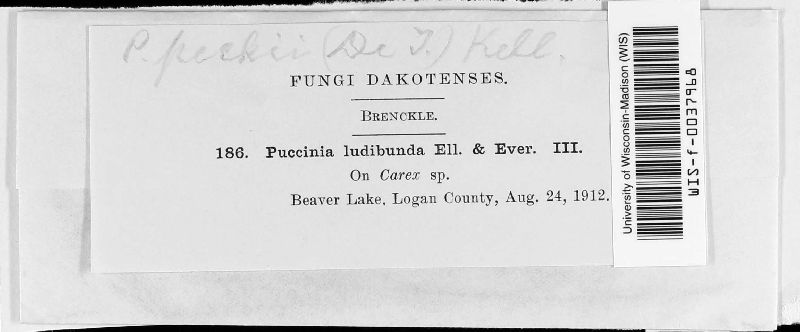 P. peckii (De T.) Kell.
FUNGI DAKOTENSES.
BRENCKLE.
186. Puccinia ludibunda Ell. & Ever. III.
On Carex sp.
Beaver Lake, Logan County, Aug. 24, 1912.
University of Wisconsin-Madison (WIS)
WIS-f-0037968